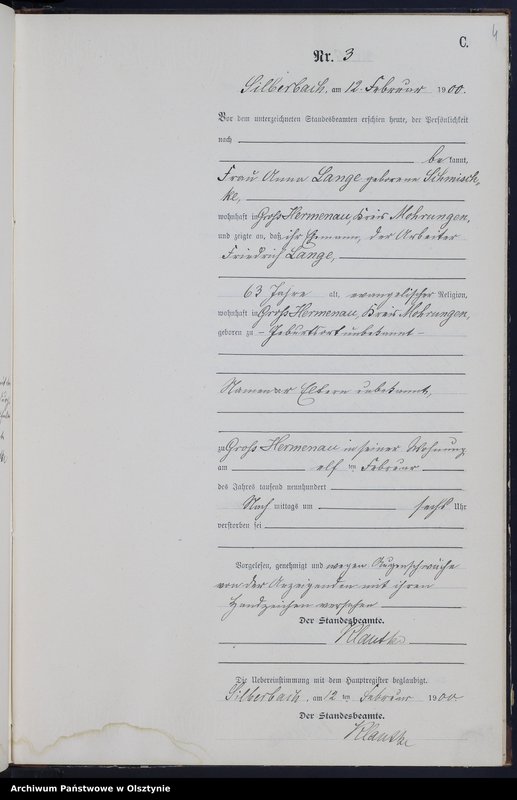 4
C.
Nr. 3
Silberbach, am 12. Februar 1900.
Vor dem unterzeichneten Standesbeamten erschien heute, der Persönlichkeit
nach
be kannt,
Frau Anna Lange geborene Schmisch-
ke,
wohnhaft in Groß Hermenau, Kreis Mohrungen,
und zeigte an, daß ihr Ehemann, der Arbeiter
Friedrich Lange,
63 Jahre alt, evangelischer Religion,
wohnhaft in Groß Hermenau, Kreis Mohrungen,
geboren zu - Geburtsort unbekannt -
Namen der Eltern unbekannt,
zu Groß Hermenau in seiner Wohnung
am elf ten Februar
des Jahres tausend neunhundert
Nach mittags um sechs Uhr
verstorben sei
Vorgelesen, genehmigt und wegen Augenschwäche
von der Anzeigenden mit ihren
Handzeichen versehen
Der Standesbeamte.
Klautke
Die Uebereinstimmung mit dem Hauptregister beglaubigt.
Silberbach, am 12 ten Februar 1900.
Der Standesbeamte.
Klautke
Archiwum Państwowe w Olsztynie